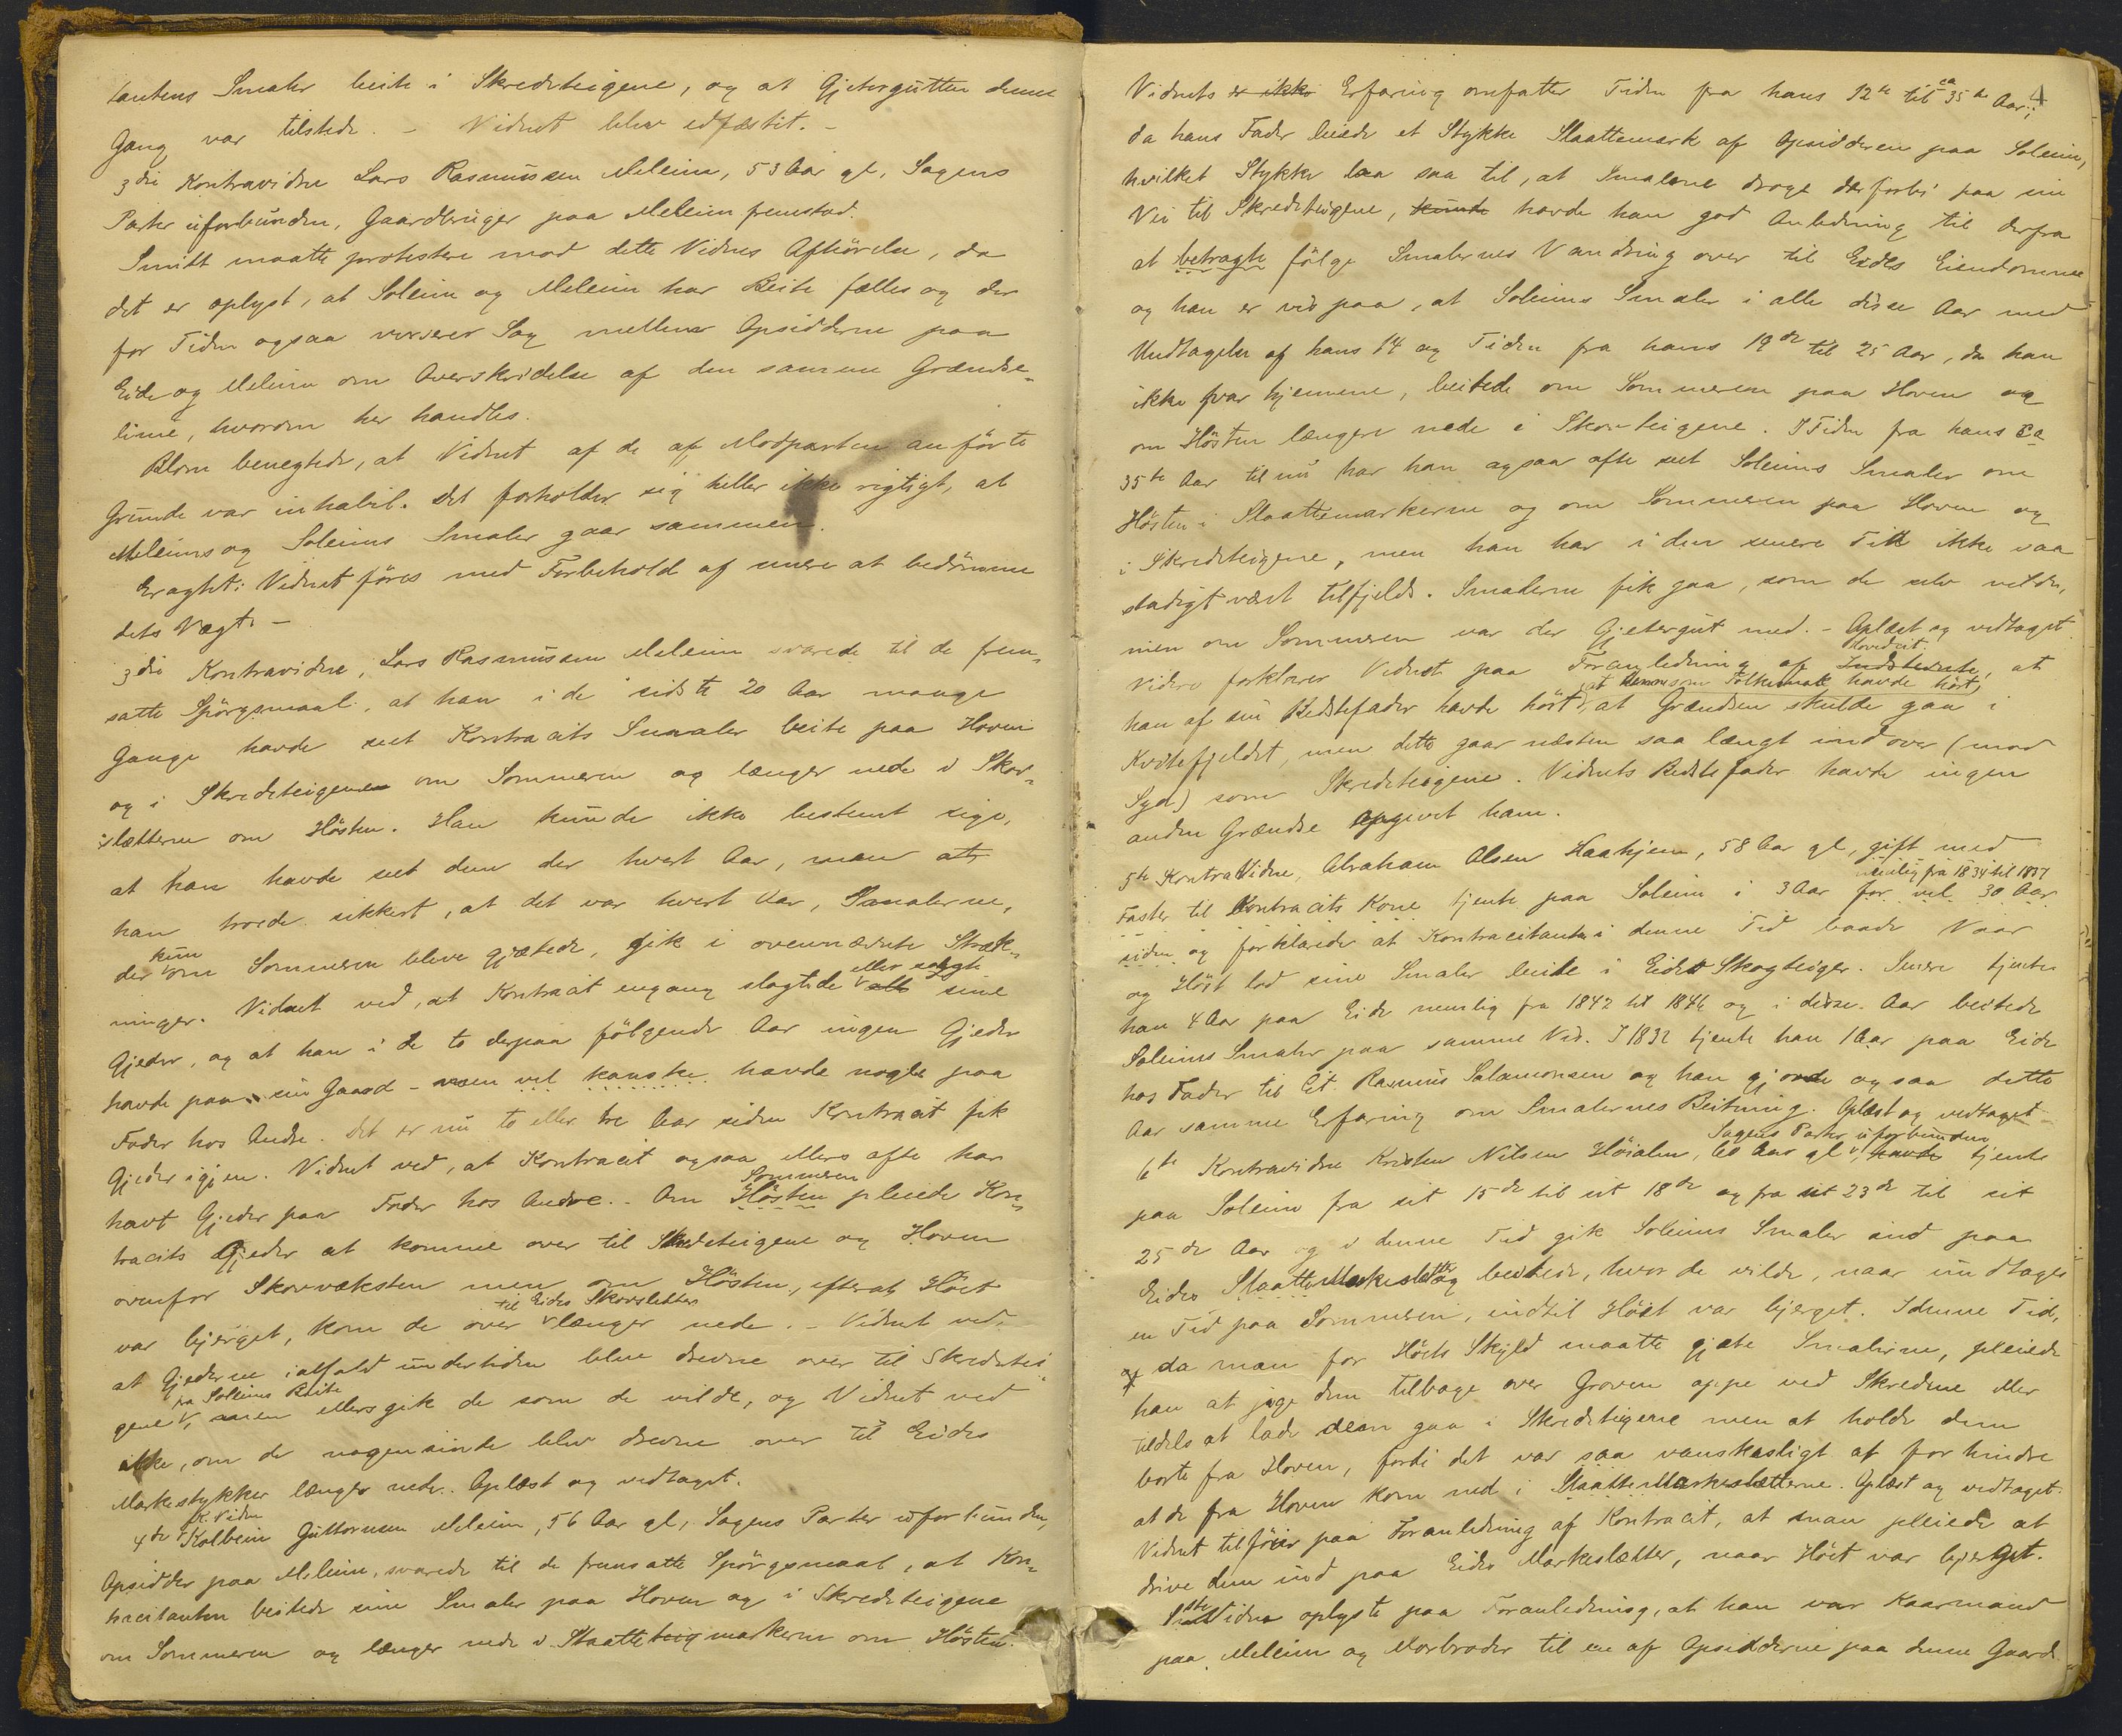 tantens Smaler beite i Skredsteigene, og at Gjetergutten denne
Gang var tilstede. – Vidnet blev edfæstet. –
3die Kontravidne Lars Rasmussen Meleim, 53 Aar gl, Sagens
Parter uforbunden, Gaardbruger paa Meleim fremstod.
Smitt maatte protestere mod dette Vidnes Afhörelse, da
det er oplyst, at Soleim og Meleim har Beite fælles og der
for Tiden ogsaa verserer Sag mellem Opsidderne paa
Eide og Meleim om Overskridelse af den samme Grændse-
linie, hvorom her handles.
Blom benegtede, at Vidnet af de af Modparten anförte
Grunde var inhabil. Det forholder sig heller ikke rigtigt, at
Meleims og Soleims Smaler gaar sammen.
Eragtet: Vidnet föres med Forbehold af senere at bedömme
dets Vægt. –
3die Kontravidne, Lars Rasmussen Meleim svarede til de frem-
satte Spörgsmaal, at han i de sidste 20 Aar mange
Gange havde seet Kontracits Smaler beite paa Hoven
og i Skredsteigene om Sommeren og længer nede i Skov-
slætterne om Hösten. Han kunde ikke bestemt sige,
at han havde seet dem der hvert Aar, men at
han troede sikkert, at det var hvert Aar, Smalerne,
der kun om Sommeren bleve gjætede, gik i ovennævnte Stræk-
ninger. Vidnet ved, at Kontracit engang slagtede eller solgte alle sine
Gjeder, og at han i de to derpaa fölgende Aar ingen Gjeder
havde paa sin Gaard – men vel kanske havde nogle paa
Foder hos Andre. Det er nu to eller tre Aar siden Kontracit fik
Gjeder igjen. Vidnet ved, at Kontracit ogsaa ellers ofte har
havt Gjeder paa Foder hos Andre. – Om Hösten Sommeren pleiede Kon-
tracits Gjeder at komme over til Skredsteigene og Hoven
ovenfor Skovvæksten men om Hösten, efterat Höet
var bjerget, kom de over til Eides Skovslætter længer nede. – Vidnet ved,
at Gjederne ialfald undertiden bleve drevne over til Skredstei-
gene fra Soleims Beite, men ellers gik de som de vilde, og Vidnet ved
ikke, om de nogensinde blev drevne over til Eides
Markestykker længer nede. Oplæst og vedtaget.
4de K. Vidne Kolbein Guttormsen Meleim, 56 Aar gl, Sagens Parter uforbunden,
Opsidder paa Meleim, svarede til de fremsatte Spörgsmaal, at Kon-
tracitanten beitede sine Smaler paa Hoven og i Skredsteigene
om Sommeren og længer nede i Slaatteteigmarkerne om Hösten.
4
Vidnets er ikke Erfaring omfatter Tiden fra hans 12te til ca 35te Aar;
da hans Fader leiede et Stykke Slaattemark af Opsidderen paa Soleim,
hvilket Stykke laa saa til, at Smalene droge derforbi paa sin
Vei til Skredsteigene, kunde havde han god Anledning til derfra
at betragte fölge Smalernes Vandring over til Eides Eiendomme
og han er vis paa, at Soleims Smaler i alle disse Aar med
Undtagelse af hans 14 og Tiden fra hans 19de til 25 Aar, da han
ikke var hjemme, beitede om Sommeren paa Hoven og
om Hösten længere nede i Skovteigene. I Tiden fra hans ca
35te Aar til nu har han ogsaa ofte seet Soleims Smaler om
Hösten i Slaattemarkerne og om Sommeren paa Hoven og
i Skredsteigene, men han har i den senere Tid ikke saa
stadigt været tilfjelds. Smalerne fik gaa, som de selv vilde,
men om Sommeren var der Gjetergut med. – Oplæst og vedtaget
Videre forklarer Vidnet paa Foranledning af Indstevnte Hovedcit. at
han af sin Bedstefader havde hört, at denne som Folkesnak havde hört, at Grændsen skulde gaa i
Kvitefjeldet, men dette gaar næsten saa langt ind over (mod
Syd) som Skredsteigene. Vidnets Bedstefader havde ingen
anden Grændse opgivet ham.
5te Kontravidne, Abraham Olsen Haahjem, 58 Aar gl, gift med
Faster til Kontracits Kone tjente paa Soleim i 3 Aar nemlig fra 1834 til 1837 for vel 30 Aar
siden og forklarede at Kontracitanten i denne Tid baade Vaar
og Höst lod sine Smaler beite i Eides Skogteiger. Senere tjente
han 4 Aar paa Eide nemlig fra 1842 til 1846 og i disse Aar beitede
Soleims Smaler paa samme Vis. I 1832 tjente han 1 Aar paa Eide
hos Fader til Cit. Rasmus Salamonsen og han gjorde ogsaa dette
Aar samme Erfaring om Smalernes Beitning. Oplæst og vedtaget
6te Kontravidne Kristen Nilsen Höialm, 60 Aar gl, Sagens Parter uforbunden, havde tjente
paa Soleim fra sit 15de til sit 18de og fra sit 23de til sit
25de Aar og i denne Tid gik Soleims Smaler ind paa
Eides Slaatte Markeslætter og beitede, hvor de vilde, naar undtages
en Tid paa Sommeren, indtil Höet var bjerget. I denne Tid,
og da man for Höets Skyld maatte gjæte Smalerne, pleiede
han at jage dem tilbage over Groven oppe ved Skredene eller
tildels at lade dem gaa i Skredsteigene men at holde dem
borte fra Hoven, fordi det var saa vanskeligt at forhindre
at de fra Hoven kom ned i Slaatte Markeslætterne. Oplæst og vedtaget.
Vidnet tilföier paa Foranledning af Kontracit, at man pleiede at
drive dem ind paa Eides Markeslætter, naar Höet var bjerget.
Vidne oplyste paa Foranledning, at han var Kaarmand
paa Meleim og Morbroder til en af Opsidderne paa denne Gaard.